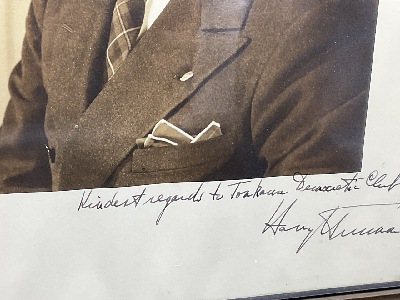 Kindest regards to Tonkawa Democratic Club
Harry Truman